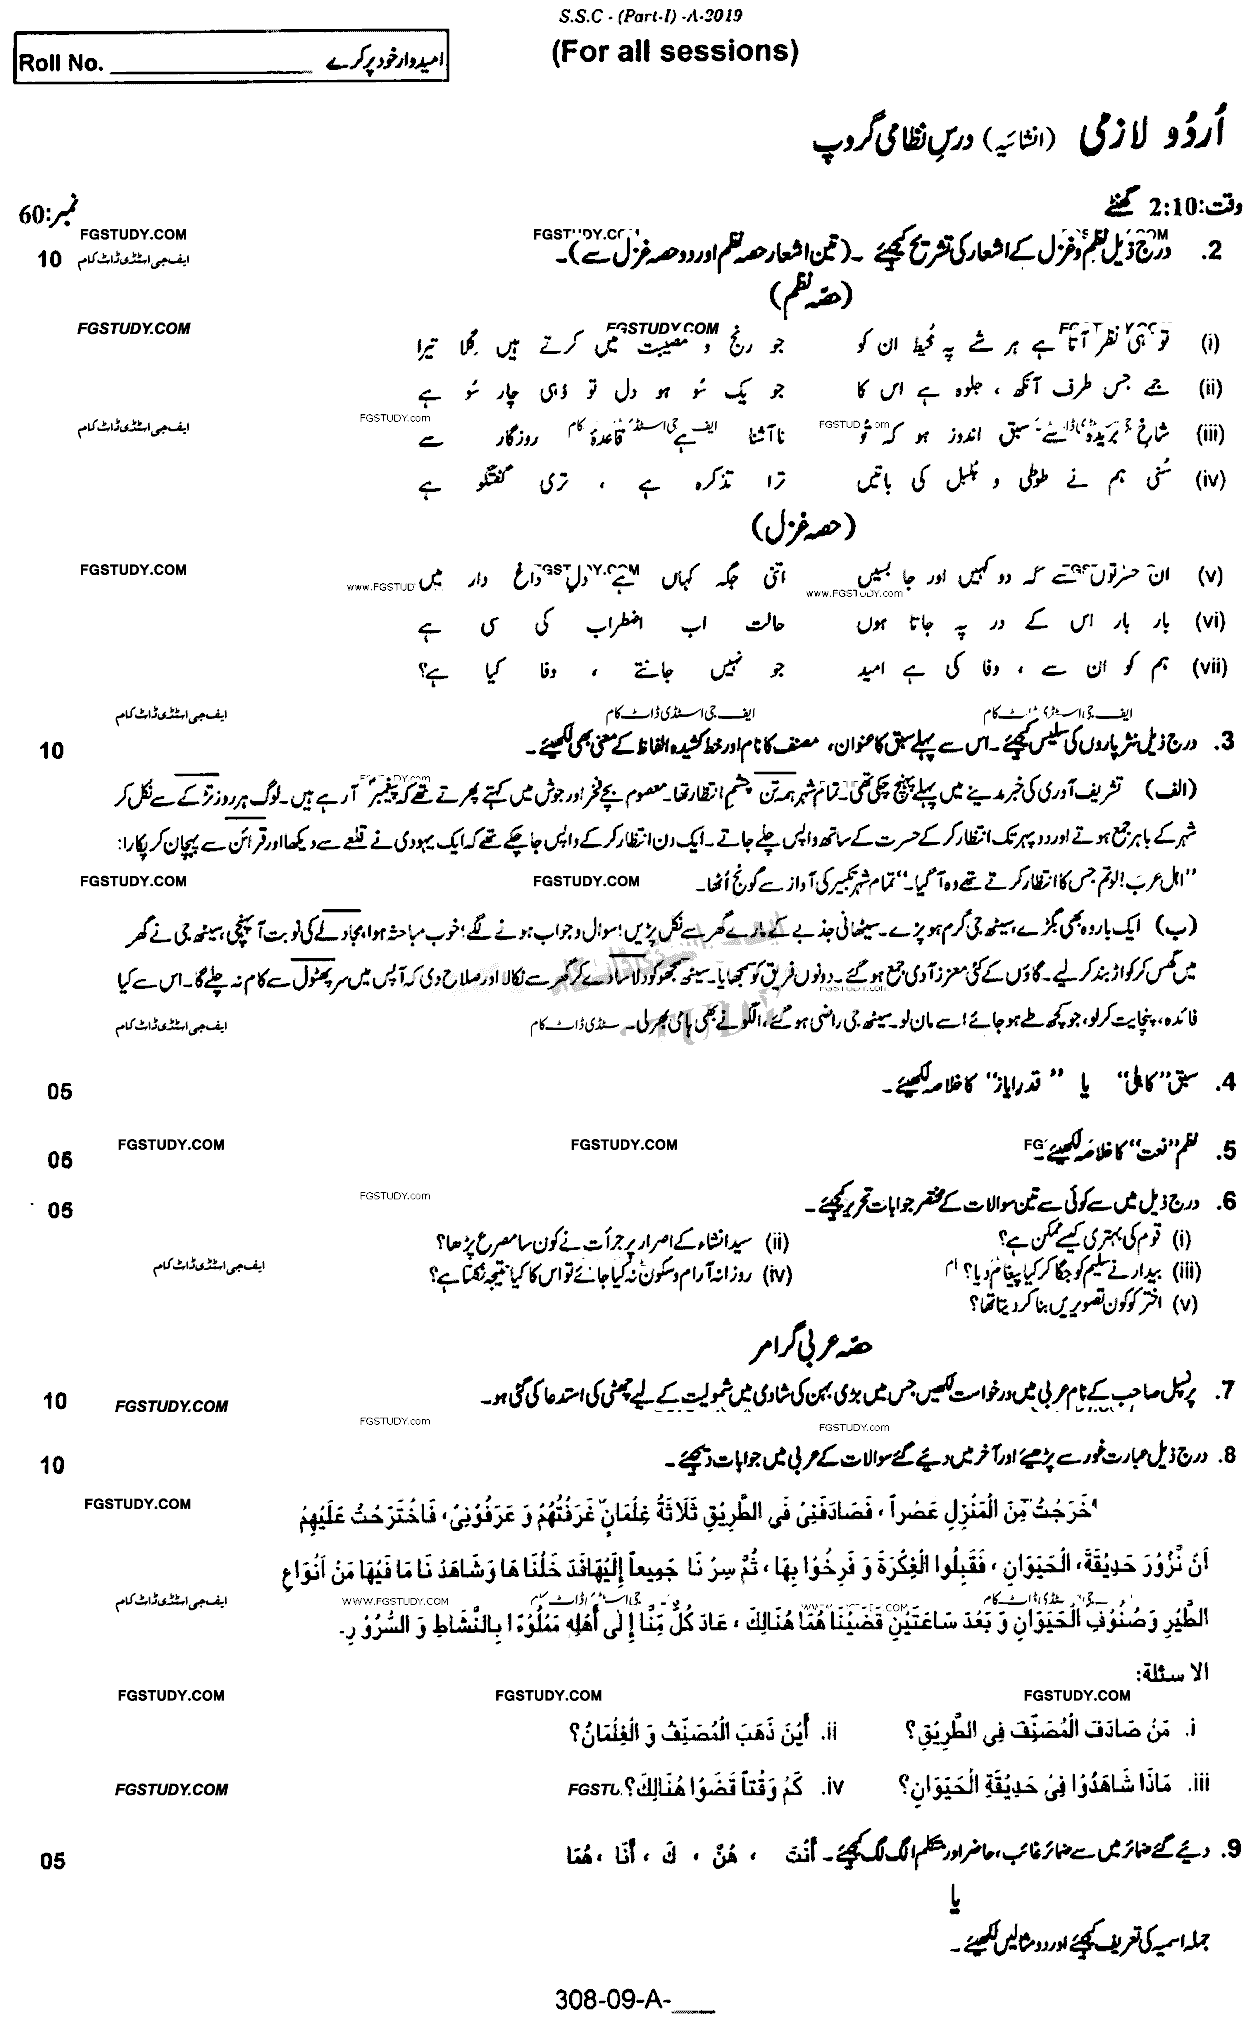 S.S.C - (Part-I) -A-2019
(For all sessions)
Roll No. ____________ امیدوار خود پر کرے
اُردُو لازمی (انشائیہ) درسِ نظامی گروپ
وقت:2:10 گھنٹے نمبر:60
FGSTUDY.COM
2. درج ذیل نظم و غزل کے اشعار کی تشریح کیجئے ۔ (تین اشعار حصہ نظم اور دو حصہ غزل سے)۔ 10
ایف جی اسٹڈی ڈاٹ کام
(حصّہ نظم)
FGSTUDY.COM FGSTUDY.COM
(i) تو ہی نظر آتا ہے ہر شے پہ مُحیط ان کو جو رنج و مصیبت میں کرتے ہیں گلا تیرا
(ii) جے جس طرف آنکھ ، جلوہ ہے اس کا جو یک سُو ہو دل تو وُہی چار سُو ہے
FGSTUDY.com
(iii) شاخِ بریدہ سے سبق اندوز ہو کہ تُو ناآشنا ہے قاعدۂ روزگار سے
ایف جی اسٹڈی ڈاٹ کام
(iv) سُنی ہم نے طوطی و بُلبل کی باتیں ترا تذکرہ ہے ، تری گفتگو ہے
(حصہ غزل)
FGSTUDY.COM
(v) ان حسرتوں سے کہ دو کہیں اور جا بسیں اتنی جگہ کہاں ہے دلِ داغ دار میں
www.FGSTUDY.com
(vi) بار بار اس کے در پہ جاتا ہوں حالت اب اضطراب کی سی ہے
(vii) ہم کو ان سے ، وفا کی ہے امید جو نہیں جانتے ، وفا کیا ہے؟
ایف جی اسٹڈی ڈاٹ کام ایف جی اسٹڈی ڈاٹ کام ایف جی اسٹڈی ڈاٹ کام
3. درج ذیل نثر پاروں کی سلیس کیجئے۔ اس سے پہلے سبق کا عنوان، مصنف کا نام اور خط کشیدہ الفاظ کے معنی بھی لکھیئے۔ 10
(الف) تشریف آوری کی خبر مدینے میں پہلے پہنچ چکی تھی۔ تمام شہر ہمہ تن چشمِ انتظار تھا۔ معصوم بچے فخر اور جوش میں کہتے پھرتے تھے کہ پیغمبر آ رہے ہیں۔ لوگ ہر روز تڑکے سے نکل کر
شہر کے باہر جمع ہوتے اور دوپہر تک انتظار کر کے حسرت کے ساتھ واپس چلے جاتے ۔ ایک دن انتظار کر کے واپس جا چکے تھے کہ ایک یہودی نے قلعے سے دیکھا اور قرائن سے پہچان کر پکارا:
"اہل عرب! لو تم جس کا انتظار کرتے تھے وہ آ گیا۔" تمام شہر تکبیر کی آواز سے گونج اُٹھا۔
FGSTUDY.COM FGSTUDY.COM
(ب) ایک بار وہ بھی بگڑے، سیٹھ جی گرم ہو پڑے۔ سیٹھانی جذبے کے مارے گھر سے نکل پڑیں! سوال و جواب ہونے لگے! خوب مباحثہ ہوا، مجادلے کی نوبت آ پہنچی، سیٹھ جی نے گھر
میں گھس کر کواڑ بند کر لیے۔ گاؤں کے کئی معزز آدمی جمع ہو گئے۔ دونوں فریق کو سمجھایا۔ سیٹھ سمجھو کو دلاسا دے کر گھر سے نکالا اور صلاح دی کہ آپس میں سر پھٹول سے کام نہ چلے گا۔ اس سے کیا
فائدہ، پنچایت کر لو، جو کچھ طے ہو جائے اسے مان لو۔ سیٹھ جی راضی ہو گئے، الگو نے بھی ہامی بھر لی۔
ایف جی اسٹڈی ڈاٹ کام
4. سبق "کاہلی" یا "قدرِ ایاز" کا خلاصہ لکھیئے۔ 05
FGSTUDY.COM FGSTUDY.COM
5. نظم "نعت" کا خلاصہ لکھیئے۔ 05
FGSTUDY.com
6. درج ذیل میں سے کوئی سے تین سوالات کے مختصر جوابات تحریر کیجئے۔ 05
(i) قوم کی بہتری کیسے ممکن ہے؟ (ii) سید انشاء کے اصرار پر جرأت نے کون سا مصرع پڑھا؟
(iii) بیدار نے سلیم کو جگا کر کیا پیغام دیا؟ (iv) روزانہ آرام و سکون نہ کیا جائے تو اس کا کیا نتیجہ نکلتا ہے؟
ایف جی اسٹڈی ڈاٹ کام
(v) اختر کو کون تصویریں بنا کر دیتا تھا؟
حصّہ عربی گرامر
7. پرنسپل صاحب کے نام عربی میں درخواست لکھیں جس میں بڑی بہن کی شادی میں شمولیت کے لیے چھٹی کی استدعا کی گئی ہو۔ 10
FGSTUDY.COM
FGSTUDY.com FGSTUDY.com
8. درج ذیل عبارت غور سے پڑھیے اور آخر میں دیئے گئے سوالات کے عربی میں جوابات دیجئے۔ 10
FGSTUDY.COM
خَرَجْتُ مِّنَ الْمَنْزِلِ عَصْراً ، فَصَادَفَنِیْ فِی الطَّرِیْقِ ثَلَاثَةُ غِلْمَانٍ عَرَفْتُهُمْ وَ عَرَفُوْنِیْ، فَاقْتَرَحْتُ عَلَیْهِمْ
اَنْ نَّزُوْرَ حَدِیْقَةَ، الْحَیَوَانِ ، فَقَبِلُوا الْفِکْرَةَ وَ فَرِحُوْا بِهَا ، ثُمَّ سِرْ نَا جَمِیعاً إِلَیْهَا فَدَ خَلْنَا هَا وَ شَاهَدْ نَا مَا فِیْهَا مَنْ اَنْوَاعِ
ایف جی اسٹڈی ڈاٹ کام WWW.FGSTUDY.COM
الطَّیْرِ وَ صُنُوْفِ الْحَیَوَانِ وَ بَعْدَ سَاعَتَیْنِ قَضَیْنَا هُمَا هُنَالِکَ ، عَادَ کُلٌّ مِّنَّا إِلٰی أَهْلِهِ مَمْلُوْءًا بِالنَّشَاطِ وَ السُّرُوْ رِ۔
الا سئلة:
FGSTUDY.COM FGSTUDY.COM FGSTUDY.COM
i. مَنْ صَادَفَ الْمُصَنِّفَ فِی الطَّرِیْقِ؟ ii. أَیْنَ ذَهَبَ الْمُصَنِّفُ وَ الْغِلْمَانُ؟
iii. مَاذَا شَاهَدُوْا فِیْ حَدِیْقَةِ الْحَیَوَانِ؟ iv. کَمْ وَقْتاً قَضَوْا هُنَالِکَ؟
FGSTUDY.COM
9. دیئے گئے ضمائر میں سے ضمائر غائب، حاضر اور متکلم الگ الگ کیجئے۔ أَنْتَ ، هُنَّ ، کَ ، أَنَا ، هُمَا 05
یا
جملہ اسمیہ کی تعریف کیجئے اور دو مثالیں لکھیئے۔
308-09-A-___